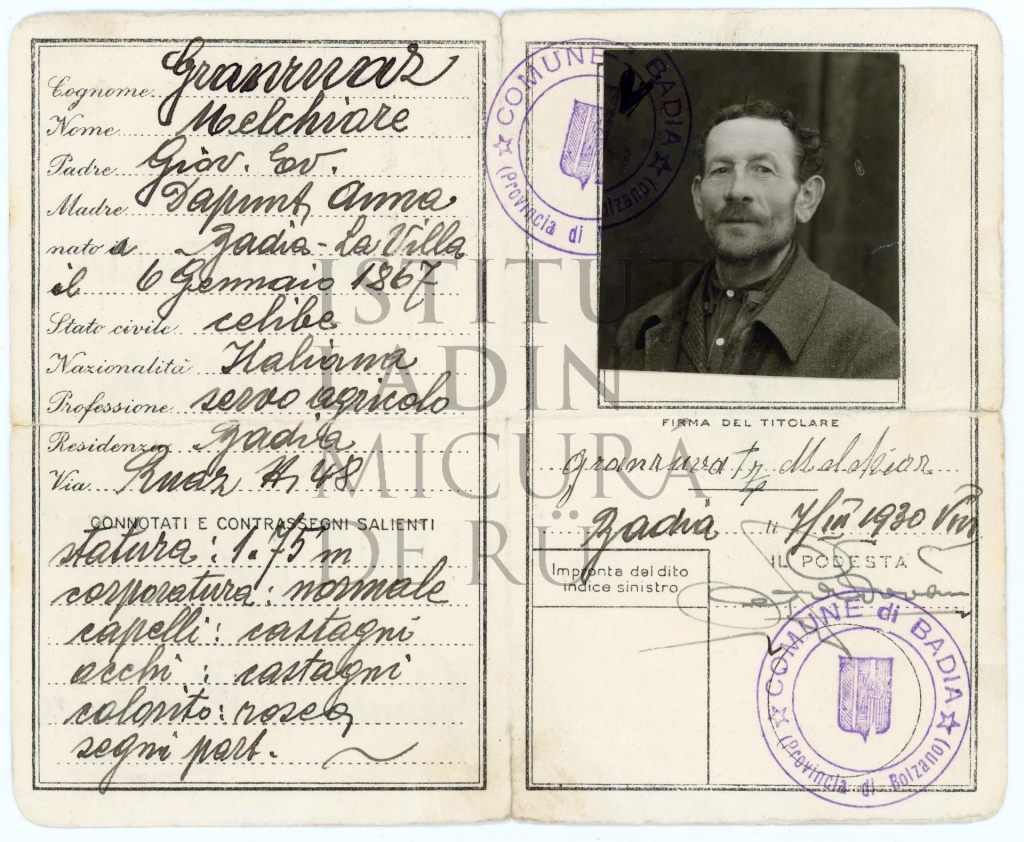 Cognome Granruaz
Nome Melchiore
Padre Giov. Ev.
Madre Dapunt Anna
nato a Badia - La Villa
il 6 Gennaio 1867
Stato civile celibe
Nazionalità Italiana
Professione servo agricolo
Residenza Badia
Via Ruaz N. 48
CONNOTATI E CONTRASSEGNI SALIENTI
statura: 1.75 m
corporatura: normale
capelli: castagni
occhi: castagni
colorito: roseo
segni part.
COMUNE di BADIA
(Provincia di Bolzano)
FIRMA DEL TITOLARE
Melchior
Badia li 7/III 1930 VIII
IL PODESTÀ
Impronta del dito
indice sinistro
COMUNE di BADIA
(Provincia di Bolzano)
ISTITUT
LADIN
MICURÁ
DE RÜ